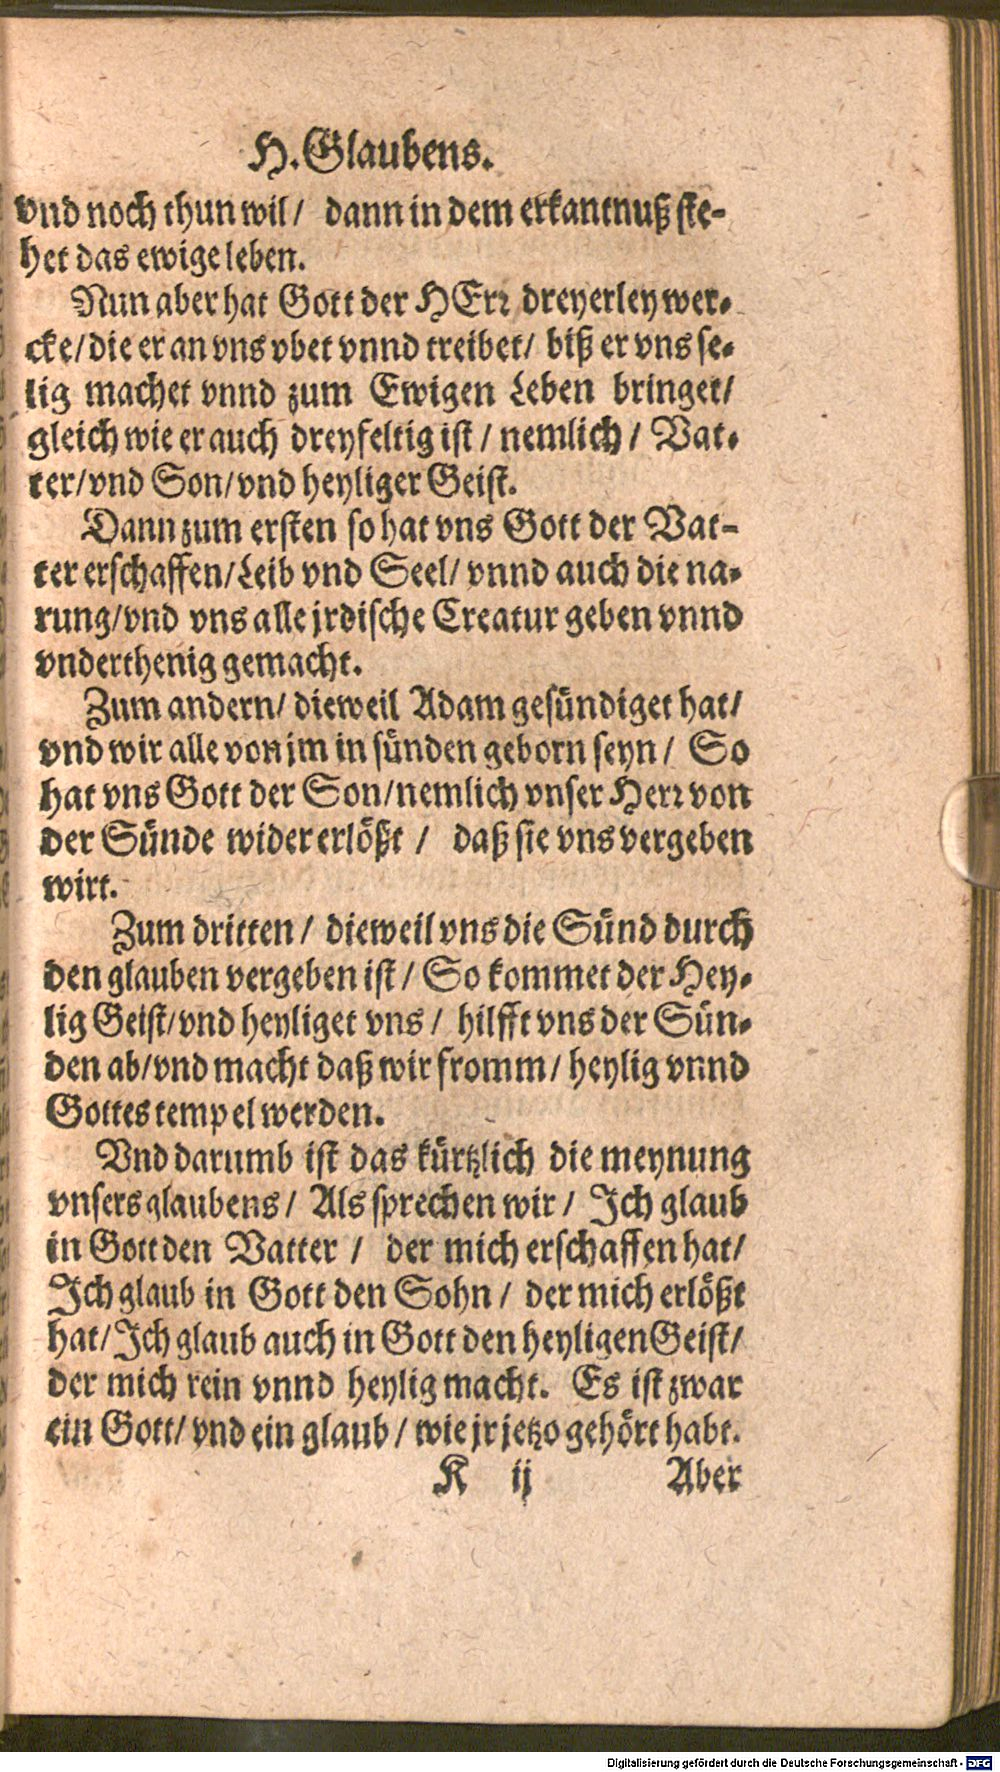 H. Glaubens.
vnd noch thun wil / dann in dem erkantnuß ste-
het das ewige leben.
Nun aber hat Gott der HErr dreyerley wer-
cke / die er an vns vbet vnnd treibet / biß er vns se-
lig machet vnnd zum Ewigen Leben bringet /
gleich wie er auch dreyfeltig ist / nemlich / Vat-
ter / vnd Son / vnd heyliger Geist.
Dann zum ersten so hat vns Gott der Vat-
ter erschaffen / Leib vnd Seel / vnnd auch die na-
rung / vnd vns alle jrdische Creatur geben vnnd
vnderthenig gemacht.
Zum andern / dieweil Adam gesündiget hat /
vnd wir alle von jm in sünden geborn seyn / So
hat vns Gott der Son / nemlich vnser Herr von
der Sünde wider erlößt / daß sie vns vergeben
wirt.
Zum dritten / dieweil vns die Sünd durch
den glauben vergeben ist / So kommet der Hey-
lig Geist / vnd heyliget vns / hilfft vns der Sün-
den ab / vnd macht daß wir fromm / heylig vnnd
Gottes tempel werden.
Vnd darumb ist das kürtzlich die meynung
vnsers glaubens / Als sprechen wir / Ich glaub
in Gott den Vatter / der mich erschaffen hat /
Ich glaub in Gott den Sohn / der mich erlößt
hat / Ich glaub auch in Gott den heyligen Geist /
der mich rein vnnd heylig macht. Es ist zwar
ein Gott / vnd ein glaub / wie jr jetzo gehört habt.
K ij Aber
Digitalisierung gefördert durch die Deutsche Forschungsgemeinschaft - DFG